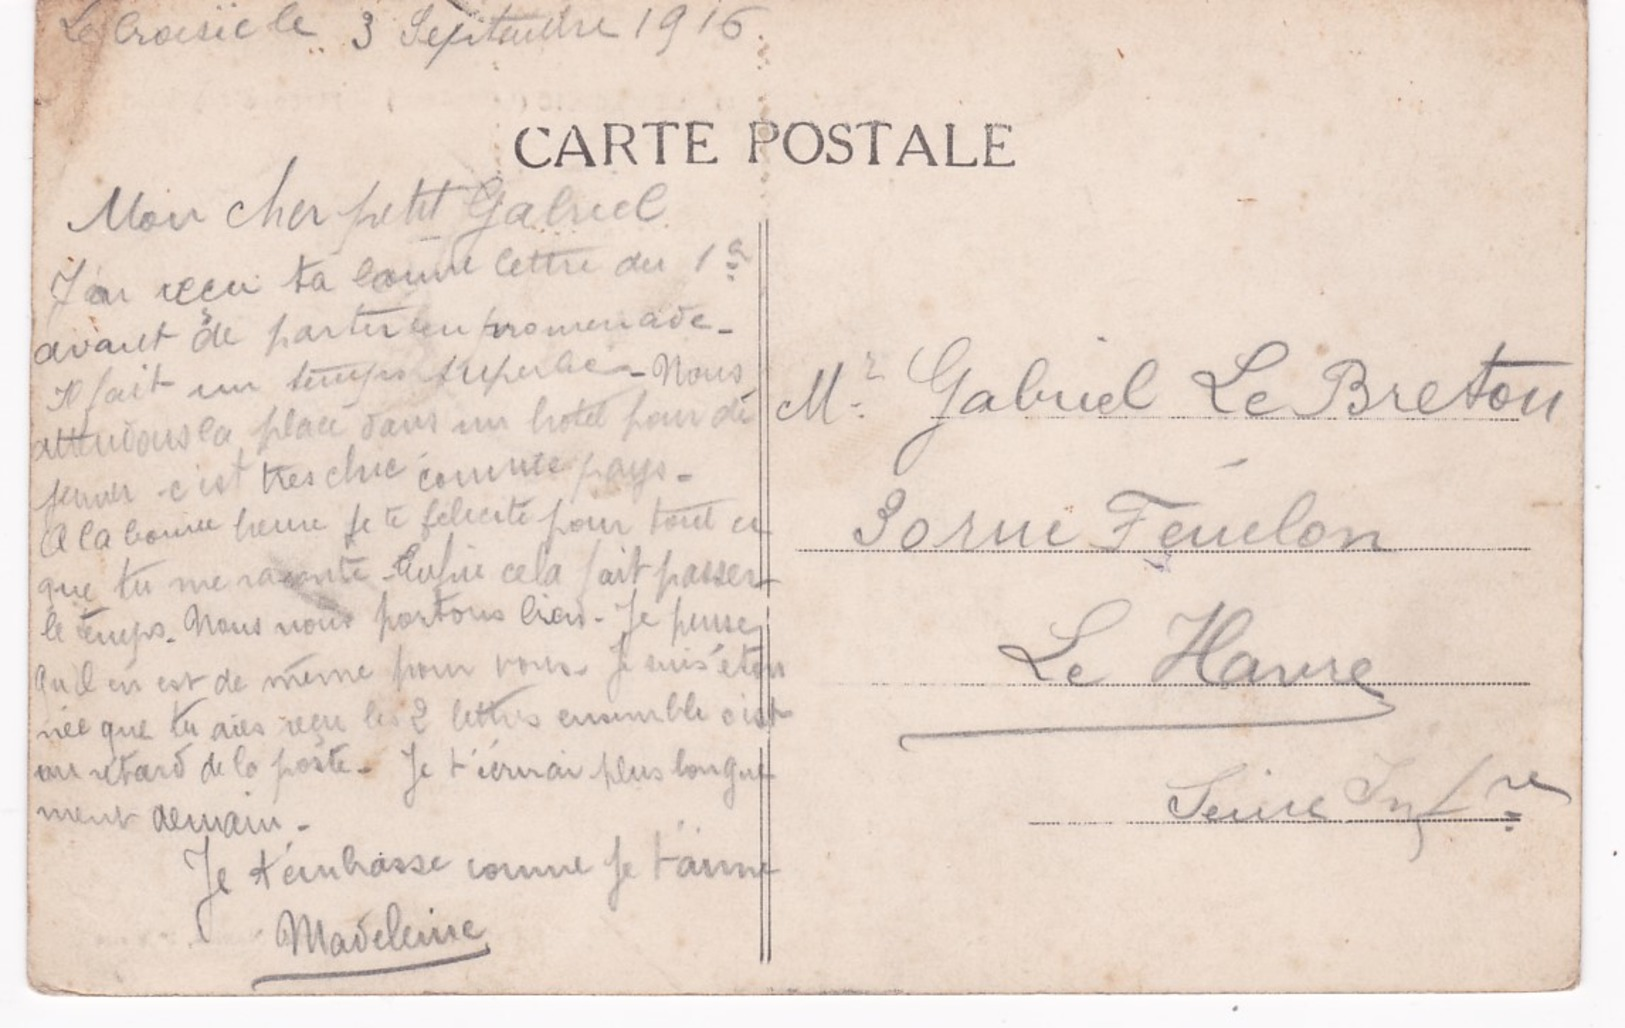 Le Croisic le 3 Septembre 1916.
CARTE POSTALE
Mon cher petit Gabriel
J'ai reçu ta bonne lettre du 1er
avant de partir en promenade -
Il fait un temps superbe - Nous
attendons la place dans un hotel pour dé
jeuner c'est tres chic comme pays -
A la bonne heure je te félicite pour tout ce
que tu me raconte - Enfin cela fait passer
le temps - Nous nous portons bien - Je pense
qu'il en est de même pour vous - Je suis éton
née que tu aies reçu les 2 lettres ensemble c'est
un retard de la poste - Je t'écrirai plus longue
ment demain -
Je t'embrasse comme je t'aime
Madeleine
Mr. Gabriel Le Breton
30 rue Fénelon
Le Havre
Seine Infre